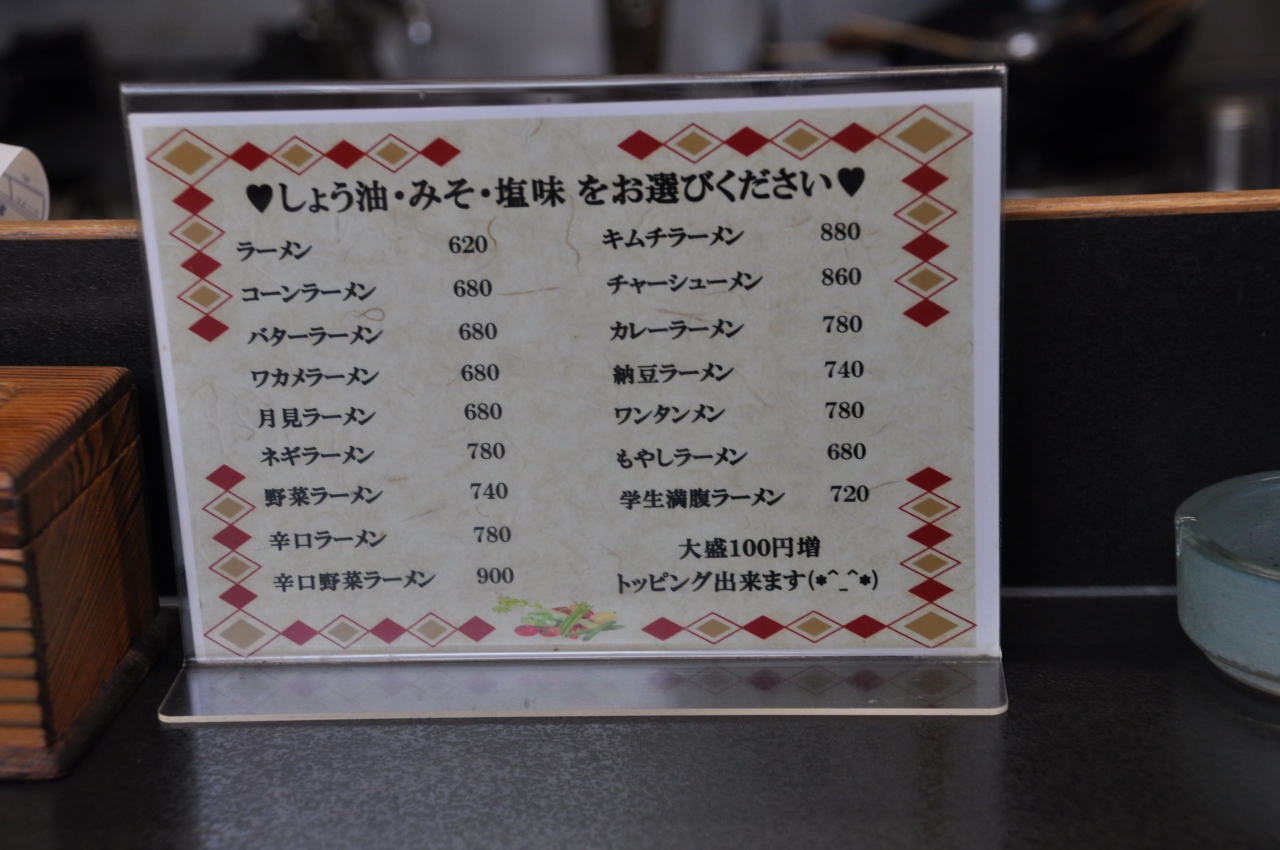 ♥しょう油・みそ・塩味 をお選びください♥
ラーメン 620
コーンラーメン 680
バターラーメン 680
ワカメラーメン 680
月見ラーメン 680
ネギラーメン 780
野菜ラーメン 740
辛口ラーメン 780
辛口野菜ラーメン 900
キムチラーメン 880
チャーシューメン 860
カレーラーメン 780
納豆ラーメン 740
ワンタンメン 780
もやしラーメン 680
学生満腹ラーメン 720
大盛100円増
トッピング出来ます(*^_^*)